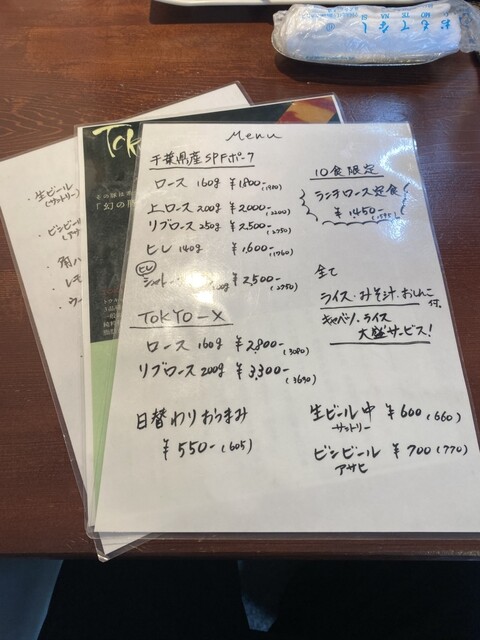 おもてなし
O MO TE NA SI
Tok
「幻の豚
・生ビール
(サントリー)
・ビンビール
Menu
千葉県産SPFポーク
ロース 160g ¥1800-(1980)
上ロース 200g ¥2000-(2200)
リブロース 250g ¥2,500-(2750)
ヒレ 140g ¥1,600-(1760)
ヒレ
¥2,500-(2750)
TOKYO-X
ロース 160g ¥2,800-(3080)
リブロース 200g ¥3,300-(3630)
日替わりおつまみ
¥550-(605)
10食限定
ランチロース定食
¥1450-(1595)
全て
ライス・みそ汁・おしんこ付。
キャベツ・ライス
大盛サービス!
生ビール中 ¥600(660)
サントリー
ビンビール ¥700(770)
アサヒ